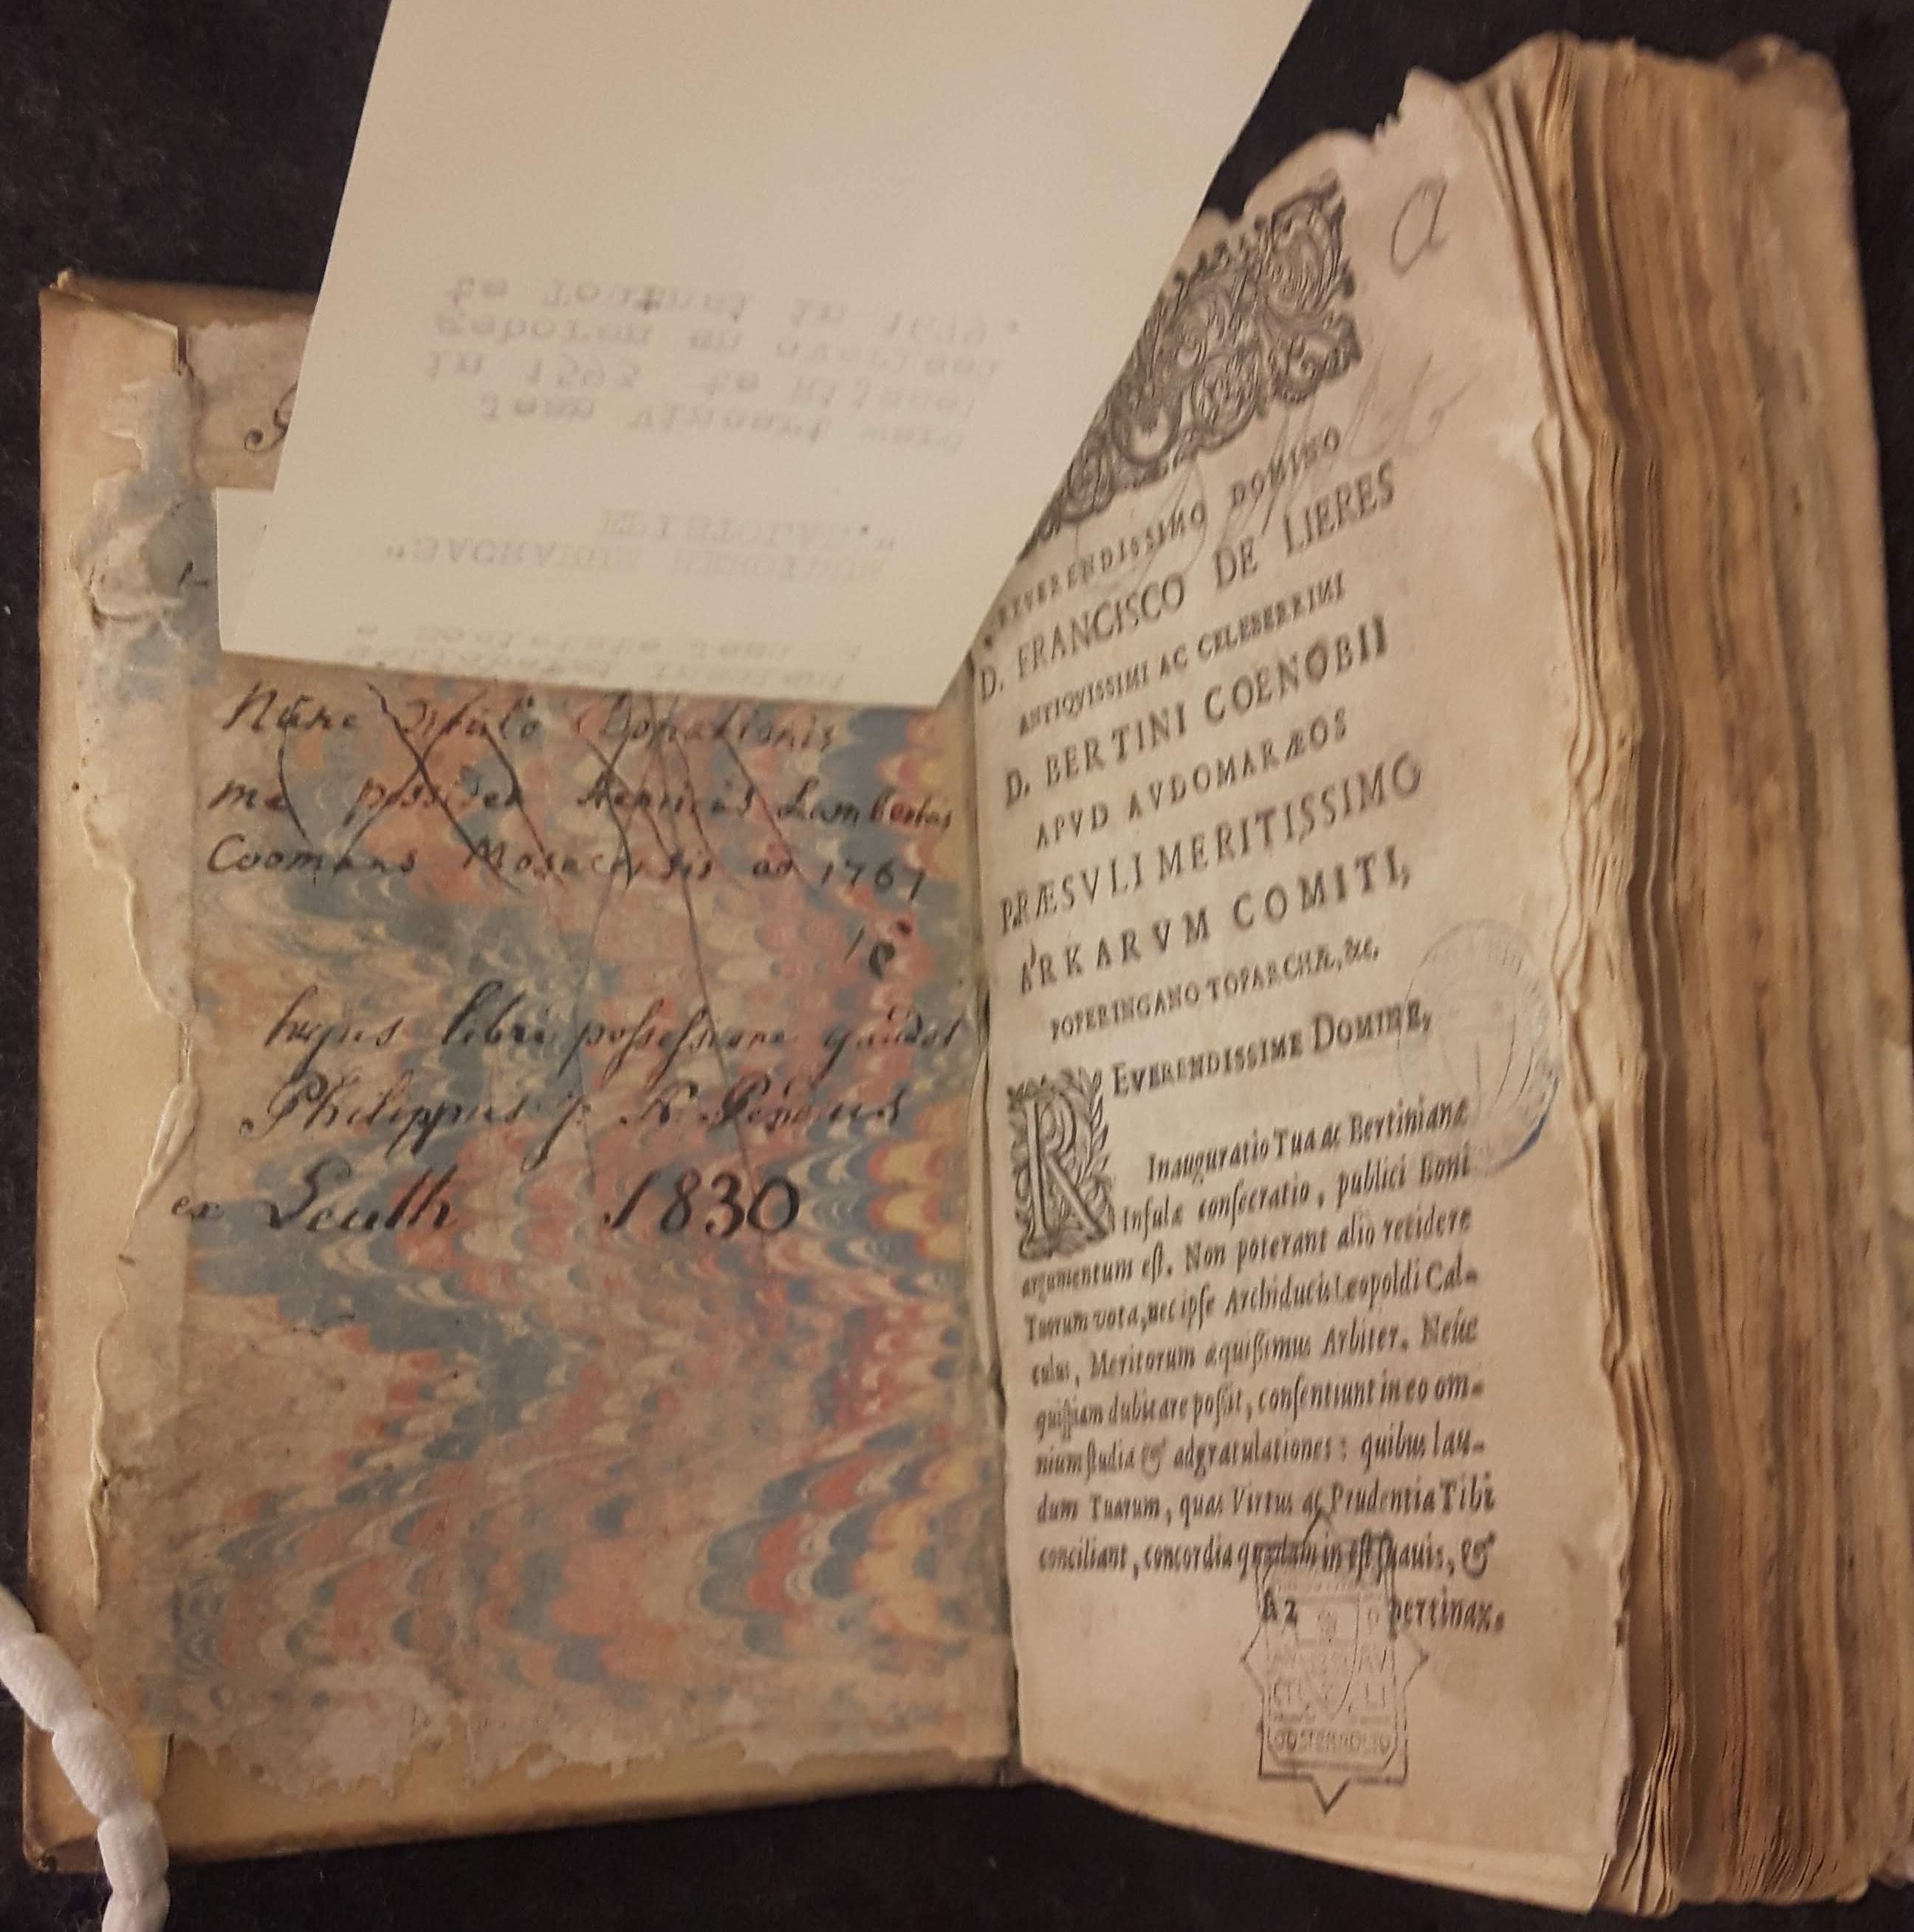 Nunc titulo Donationis
me possidet Henricus Lambertus
Coomans Mosacensis ao 1767
hujus libri possessione gaudet
Philippus j: K
ex Leuth 1830
Jean Vincart werd
in 1593 te Rijssel
geboren en overleed
te Tournai in 1679.
"SACRARUM HEROIDUM
EPISTOLAE."
e Societate Jesu
a
REVERENDISSIMO DOMINO
D. FRANCISCO DE LIERES
ANTIQVISSIMI AC CELEBERRIMI
D. BERTINI COENOBII
APVD AVDOMARÆOS
PRÆSVLI MERITISSIMO
ARKARVM COMITI,
POPERINGANO TOPARCHÆ, &c.
REVERENDISSIME DOMINE,
Inauguratio Tua ac Bertinianæ
Insulæ consecratio, publici Boni
argumentum est. Non poterant alio recidere
Tuorum vota, nec ipse Archiducis Leopoldi Cal-
culus, Meritorum æquissimus Arbiter. Neúe
quispiam dubitare possit, consentiunt in eo om-
nium studia & adgratulationes: quibus lau-
dum Tuarum, quas Virtus ac Prudentia Tibi
conciliant, concordia quædam inest suauis, &
A 2 pertinax.
OOSTERHOLTO